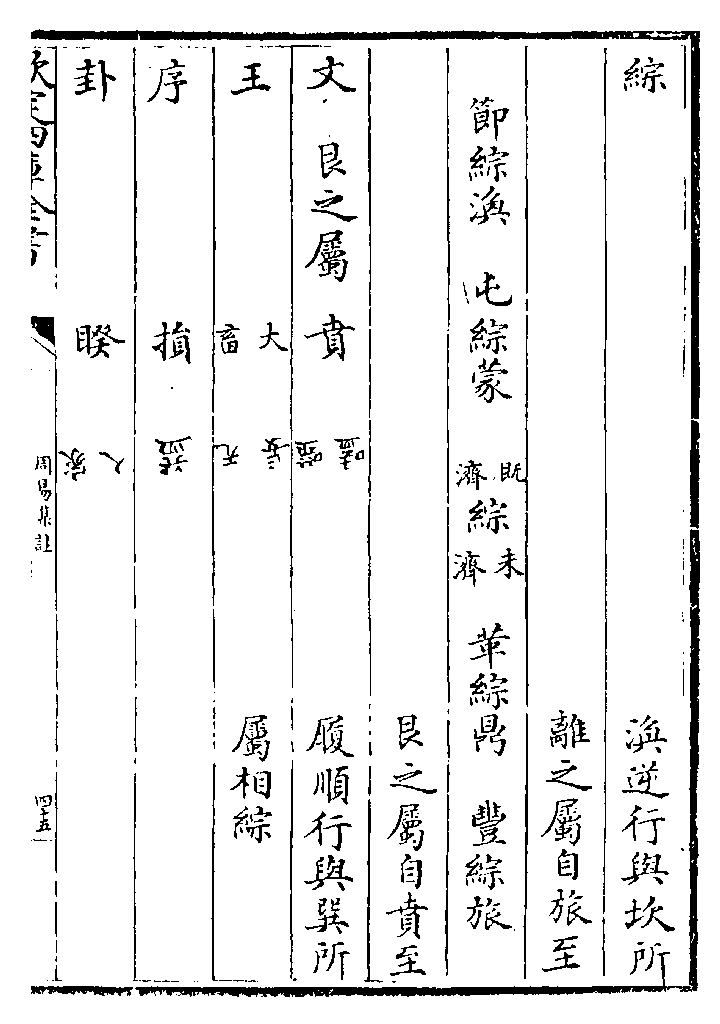 綜 渙逆行與坎所
離之屬自旅至
節綜渙 屯綜蒙 既濟綜未濟 革綜鼎 豐綜旅
艮之屬自賁至
文 艮之屬 賁 噬嗑 履順行與巽所
王 大畜 无妄 屬相綜
序 損 益
卦 睽 家人
欽定四庫全書 周易集註 四十五